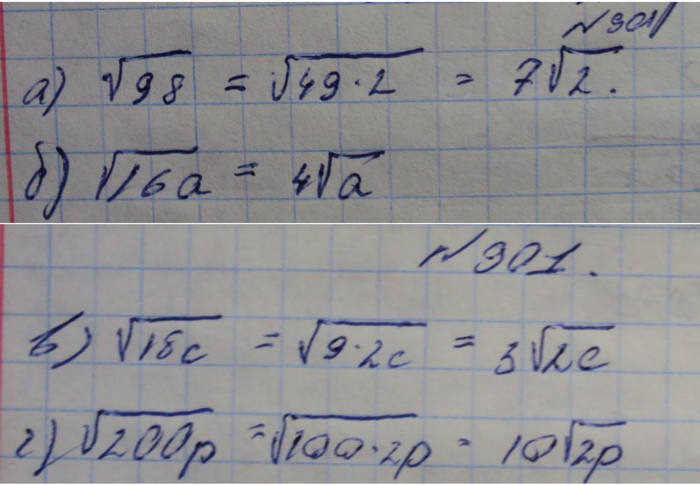 №901
а) √98 = √49·2 = 7√2.
б) √16a = 4√a
№901.
в) √18c = √9·2c = 3√2c
г) √200p = √100·2p = 10√2p